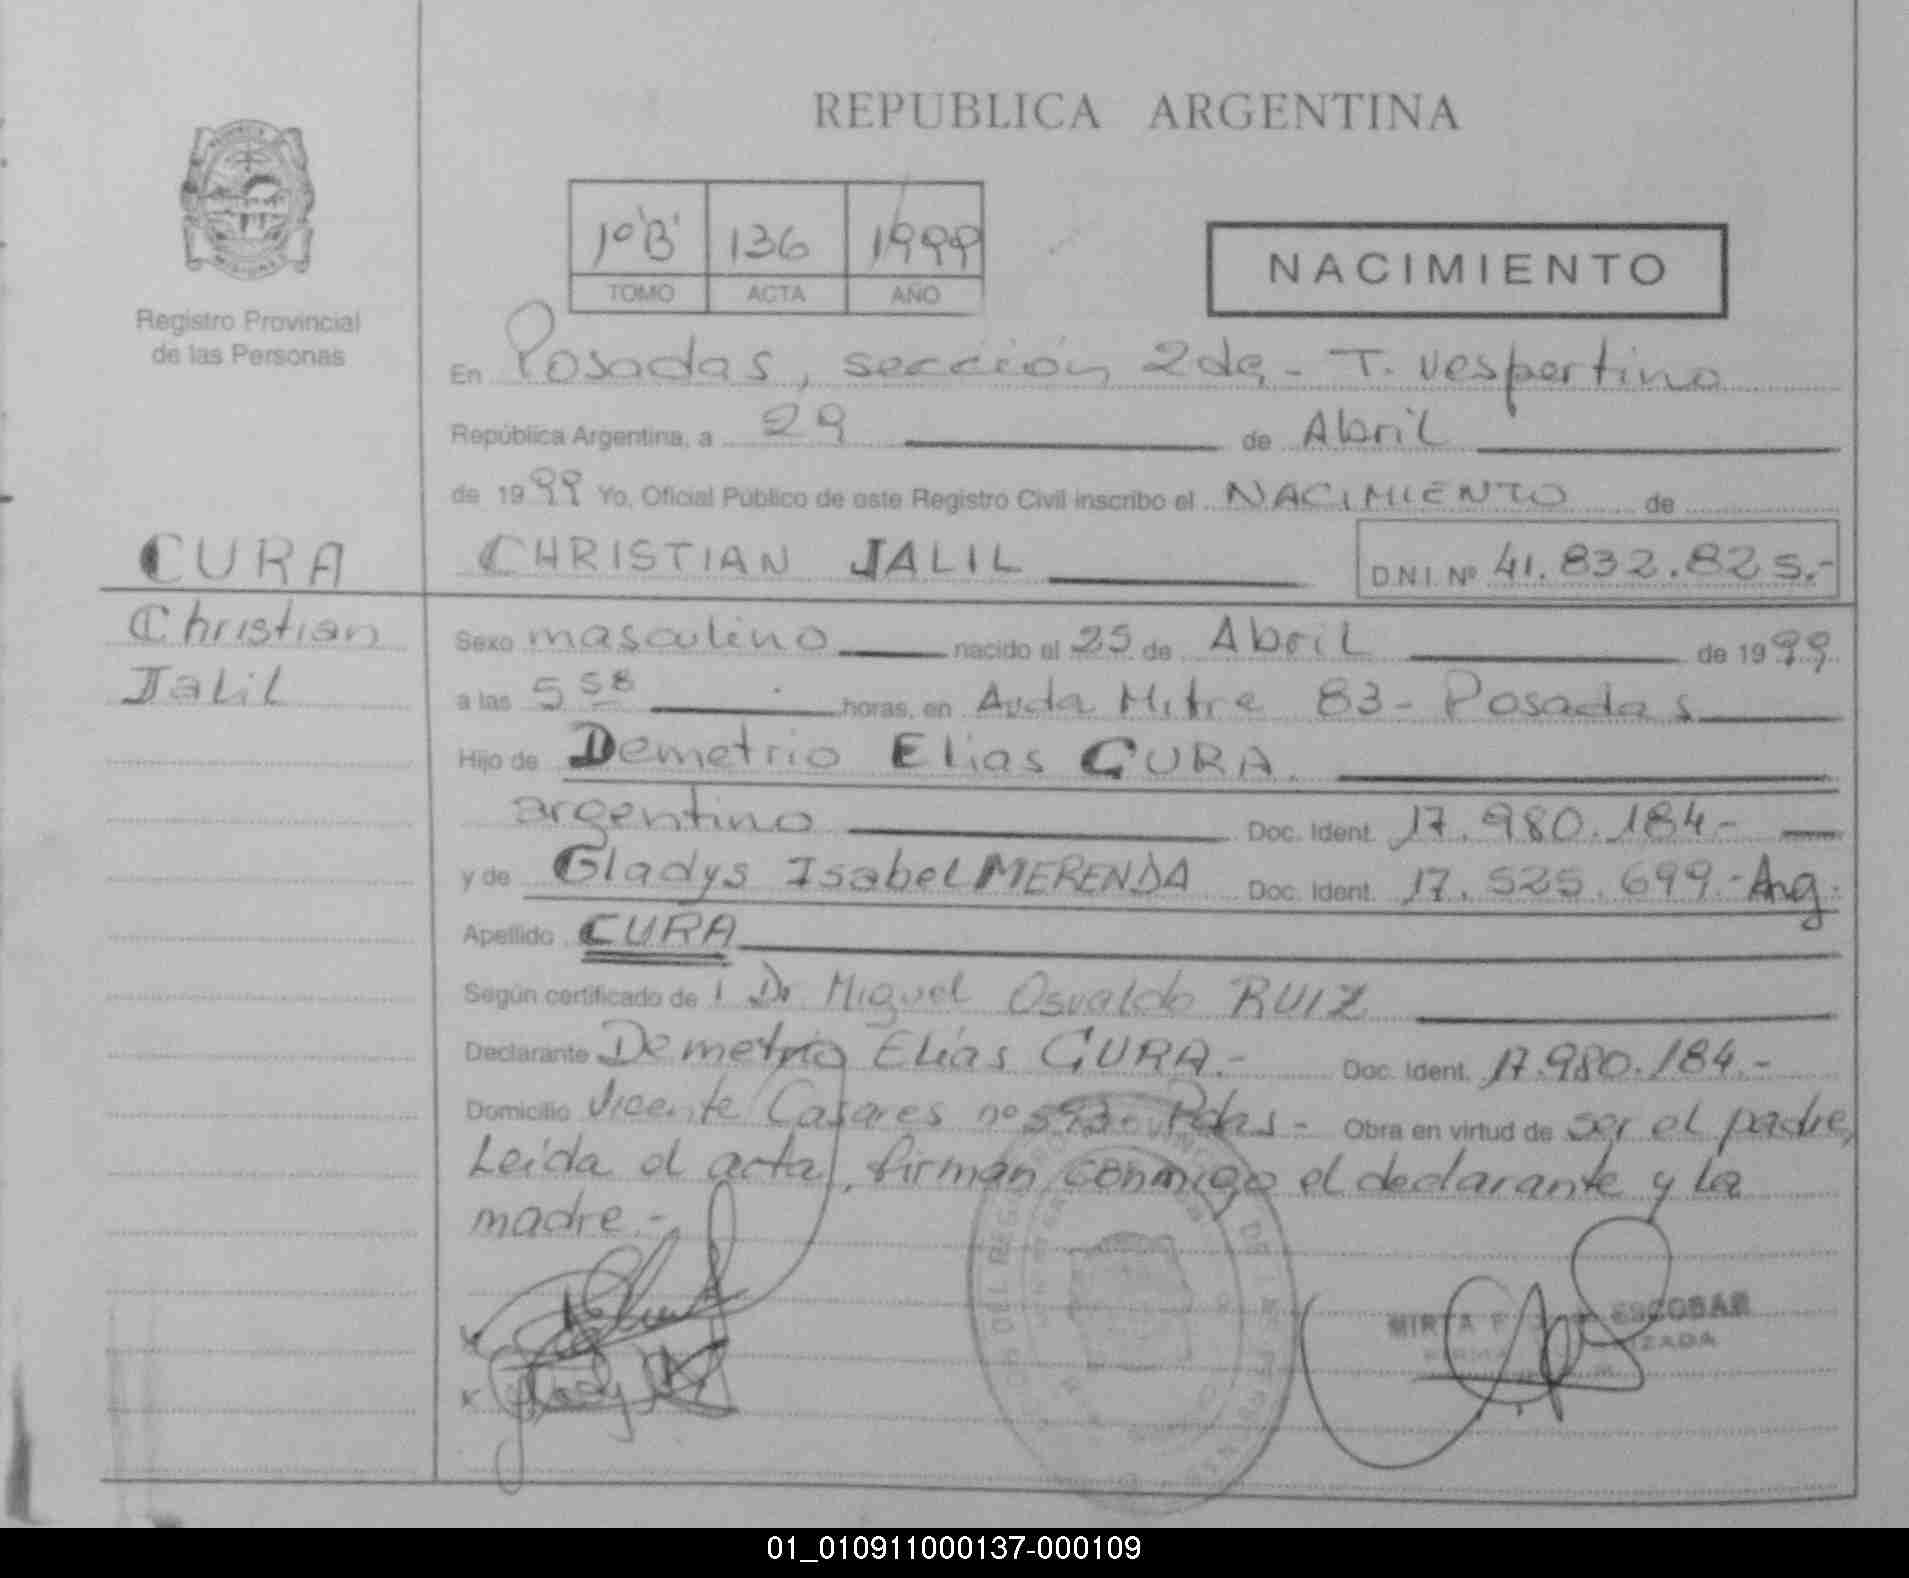 REPUBLICA ARGENTINA
MISIONES
Registro Provincial
de las Personas
1º "B" 136 1999
TOMO ACTA AÑO
NACIMIENTO
En Posadas, sección 2da - T. vespertino
República Argentina, a 29 de Abril
de 1999 Yo, Oficial Público de este Registro Civil inscribo el NACIMIENTO de
CURA
Christian
Jalil
CHRISTIAN JALIL D.N.I. Nº 41.832.825.-
Sexo masculino nacido el 25 de Abril de 1999
a las 5 58 horas, en Avda Mitre 83 - Posadas
Hijo de Demetrio Elias CURA.
argentino Doc. Ident. 17.980.184.-
y de Gladys Isabel MERENDA Doc. Ident. 17.525.699.- Arg.
Apellido CURA
Según certificado de : Dr Miguel Osvaldo RUIZ
Declarante Demetrio Elías CURA.- Doc. Ident. 17.980.184.-
Domicilio Vicente Casares nº 593- Pdas - Obra en virtud de ser el padre,
Leída el acta, firman conmigo el declarante y la
madre.-
MIRTA ESCOBAR
01_010911000137-000109